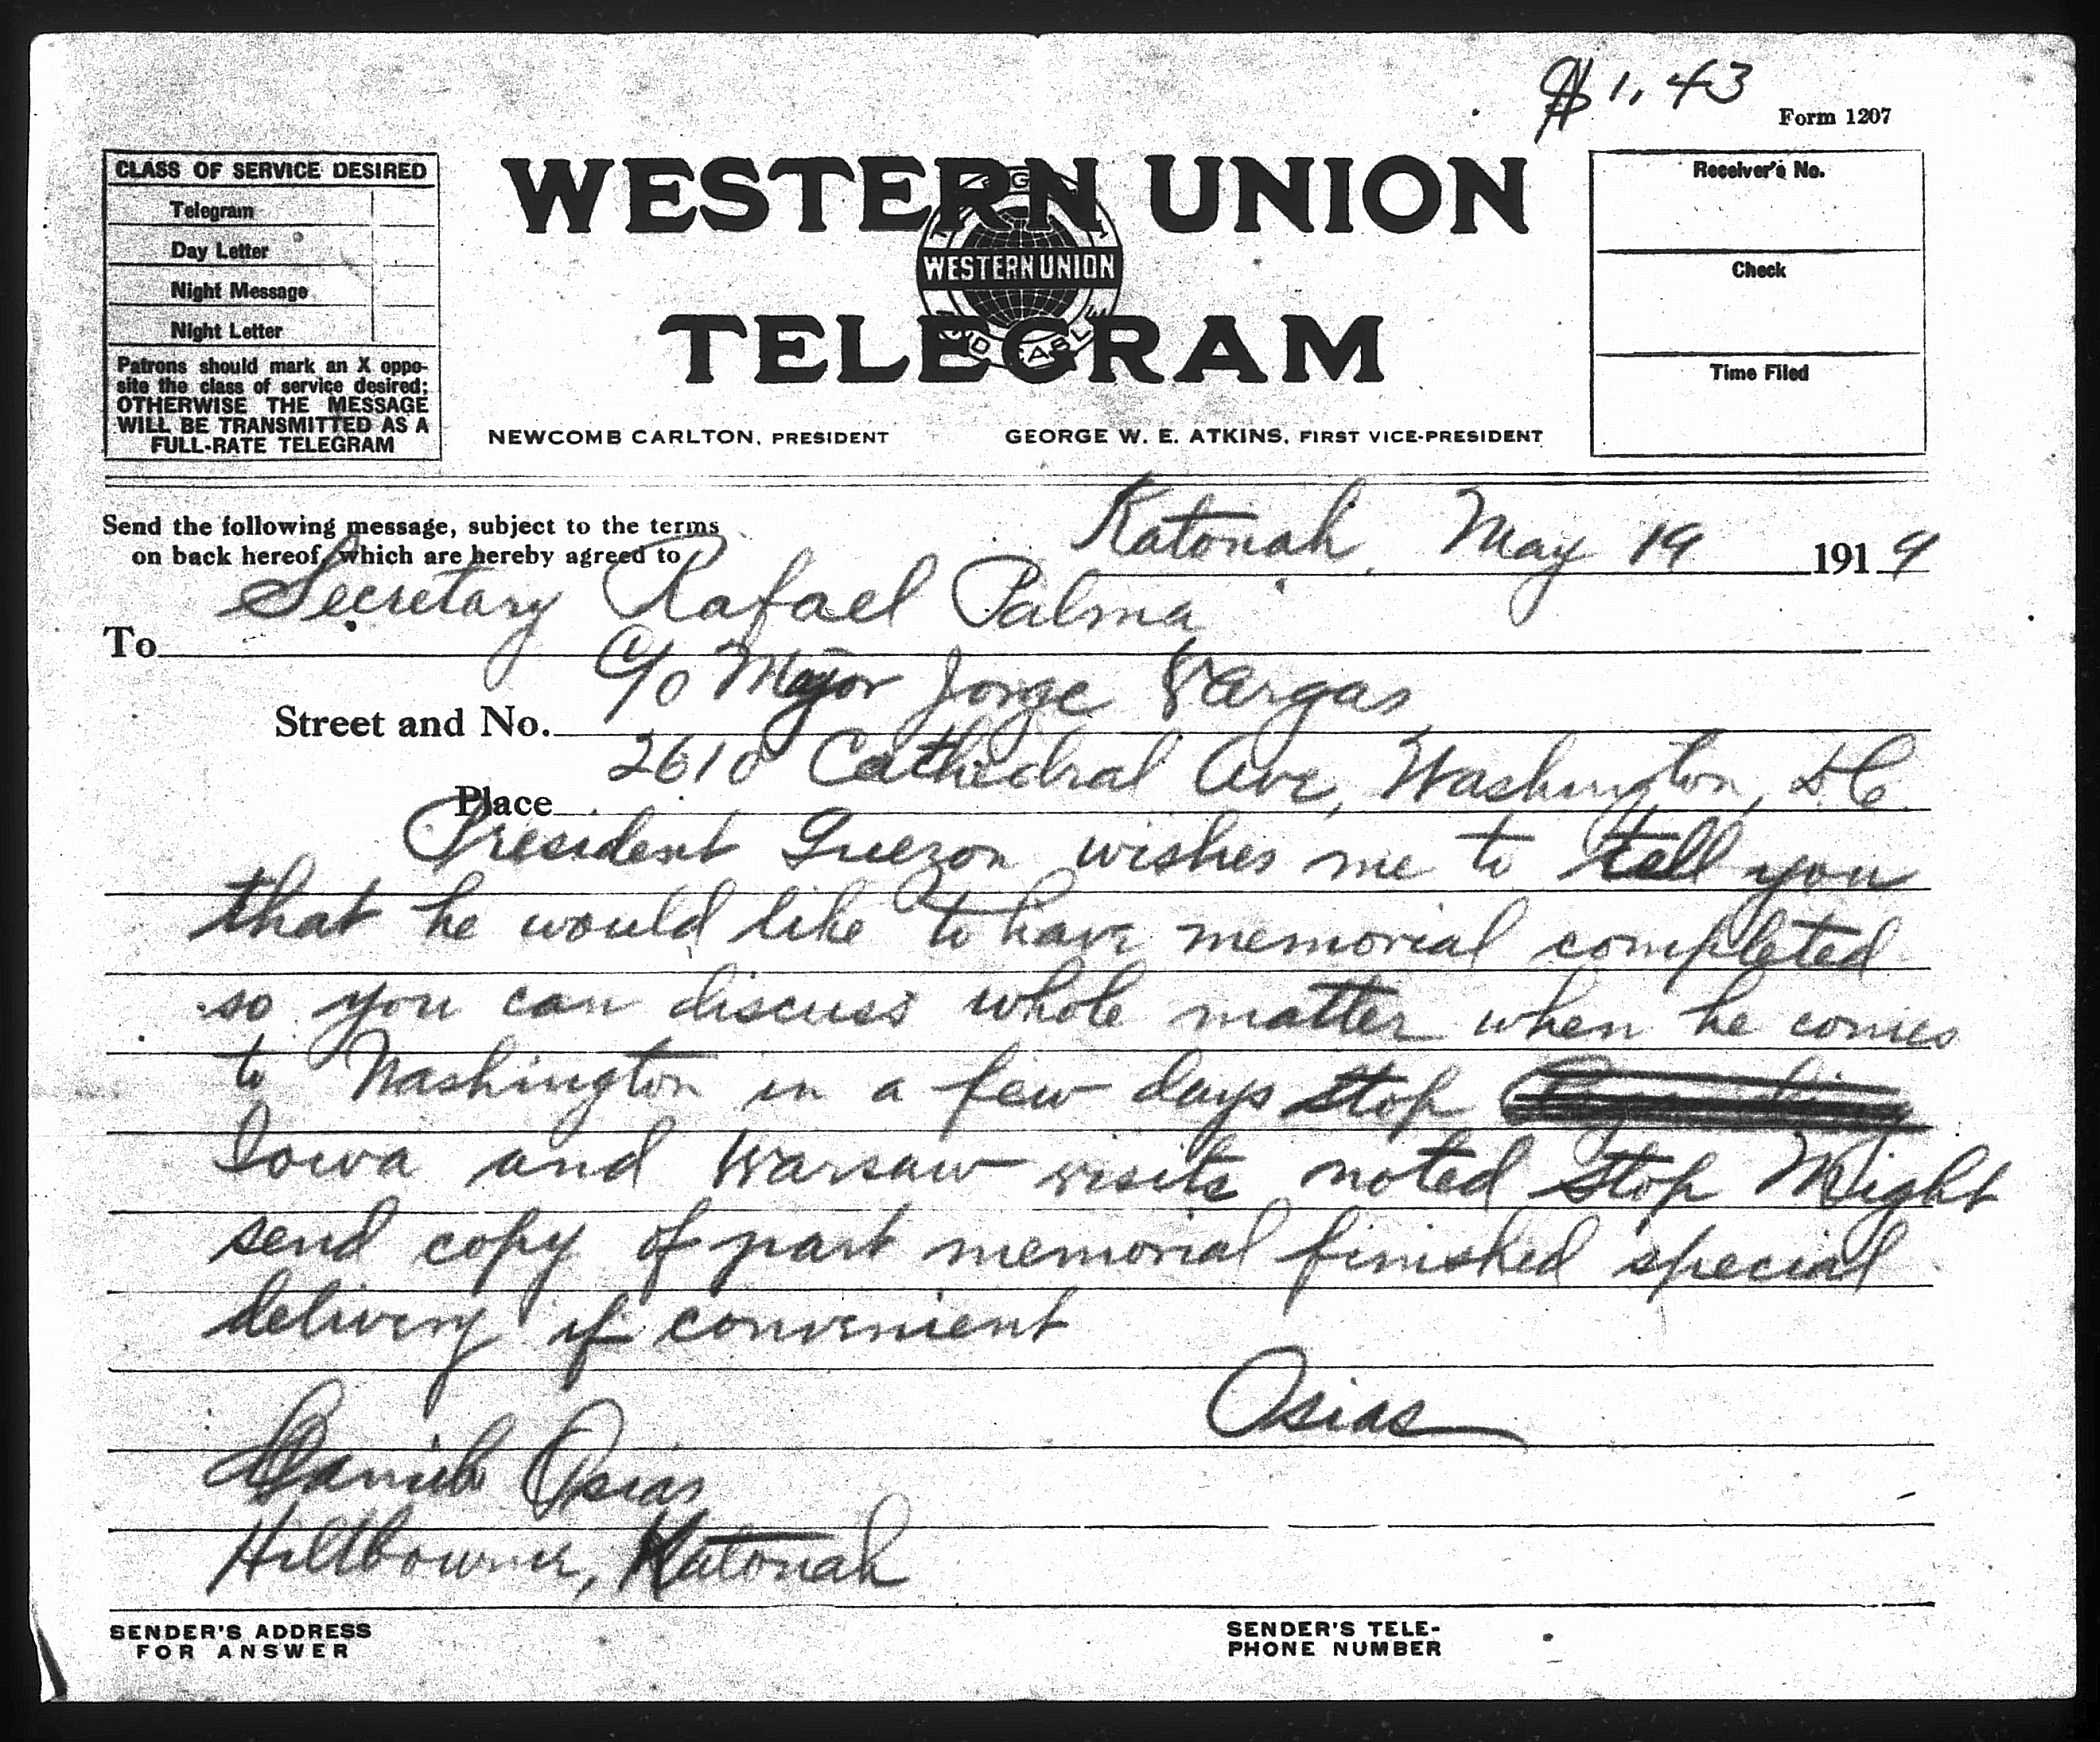 $1.43
Form 1207
CLASS OF SERVICE DESIRED
Telegram
Day Letter
Night Message
Night Letter
Patrons should mark an X oppo-
site the class of service desired:
OTHERWISE THE MESSAGE
WILL BE TRANSMITTED AS A
FULL-RATE TELEGRAM
WESTERN UNION
WESTERN UNION
TELEGRAM
NEWCOMB CARLTON, PRESIDENT
GEORGE W. E. ATKINS, FIRST VICE-PRESIDENT
Receiver's No.
Check
Time Filed
Send the following message, subject to the terms
on back hereof, which are hereby agreed to
Katonah, May 19 1919
To Secretary Rafael Palma
Street and No. c/o Major Jorge Vargas
Place 2610 Cathedral Ave, Washington, D.C.
President Quezon wishes me to tell you
that he would like to have memorial completed
so you can discuss whole matter when he comes
to Washington in a few days stop
Iowa and Warsaw visits noted stop Might
send copy of part memorial finished special
delivery if convenient
Osias
Osias
Katonah
SENDER'S ADDRESS
FOR ANSWER
SENDER'S TELE-
PHONE NUMBER